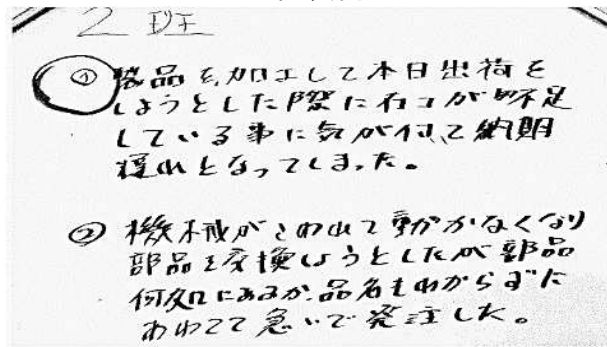 2 班
① 製品を加工して本日出荷を
しようとした際に石コが不足
している事に気が付いて納期
遅れとなってしまった。
② 機械がこわれて動かなくなり
部品を交換しようとしたが部品
何処にあるか品名もわからずに
あわてて急いで発注した。